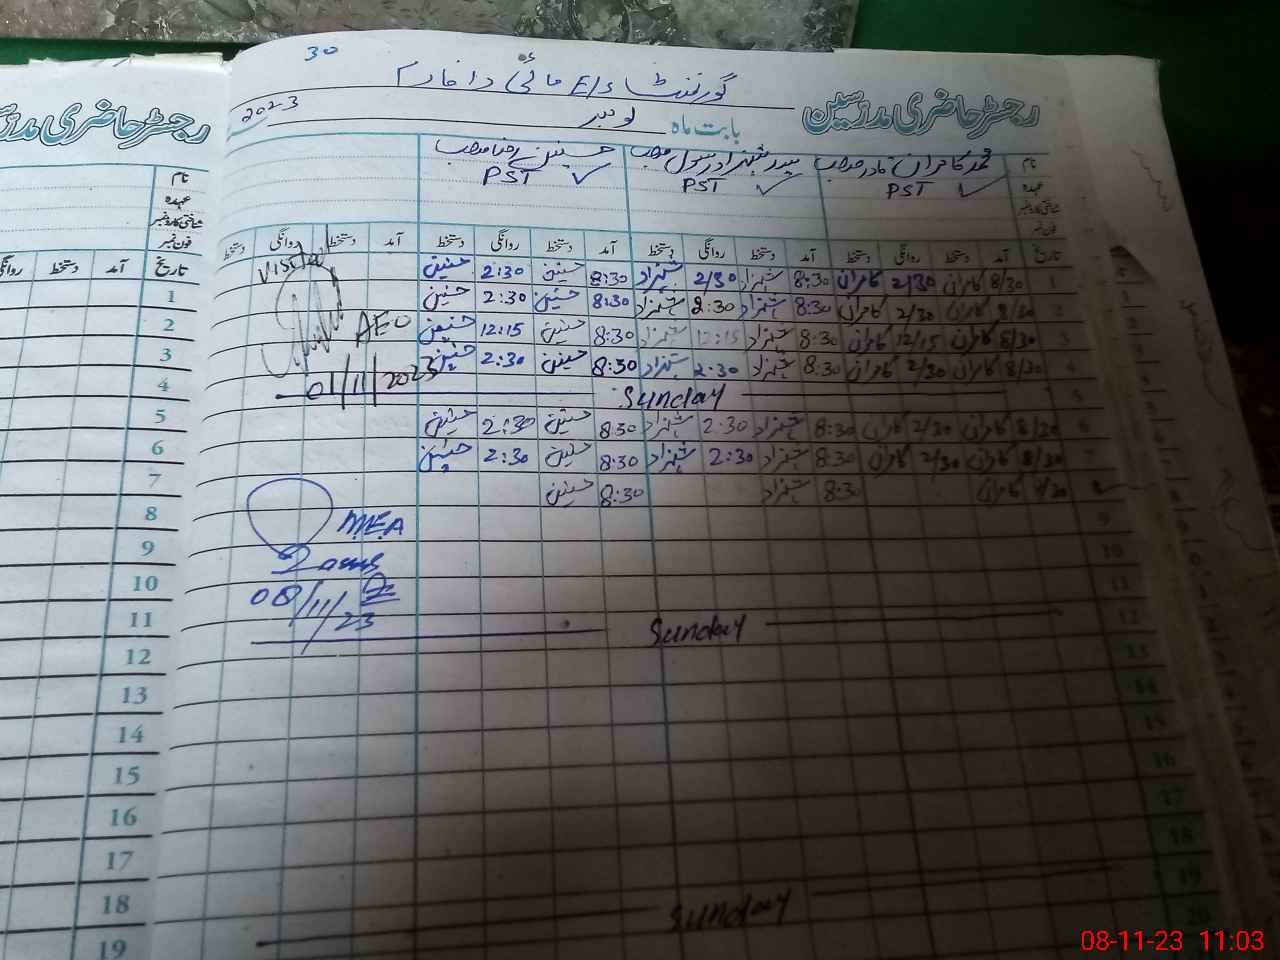 30
گورنمنٹ E/s مائی دا فارم
رجسٹر حاضری مدرسین
بابت ماہ نومبر 2023
نام محمد کامران قادر صاحب شہزاد رسول صاحب حسنین رضا صاحب
عہدہ PST PST PST
شناختی کارڈ نمبر
فون نمبر
تاریخ آمد دستخط روانگی دستخط آمد دستخط روانگی دستخط آمد دستخط روانگی دستخط آمد دستخط روانگی دستخط
1 8/30 کامران 2/30 کامران 8:30 شہزاد 2/30 شہزاد 8:30 حسنین 2:30 حسنین
2 8/30 کامران 2/30 کامران 8:30 شہزاد 2:30 شہزاد 8:30 حسنین 2:30 حسنین
3 8/30 کامران 12/15 کامران 8:30 شہزاد 12:15 شہزاد 8:30 حسنین 12:15 حسنین
4 8/30 کامران 2/30 کامران 8:30 شہزاد 2:30 شہزاد 8:30 حسنین 2:30 حسنین
5 Sunday
6 8/30 کامران 2/30 کامران 8:30 شہزاد 2:30 شہزاد 8:30 حسنین 2:30 حسنین
7 8/30 کامران 2/30 کامران 8:30 شہزاد 2:30 شہزاد 8:30 حسنین 2:30 حسنین
8 8/30 کامران 8:30 شہزاد 8:30 حسنین
9
10
11
12 Sunday
13
14
15
16
17
18
19 Sunday
20
Visited
AEO
01/11/2023
MEA
08/11/23
رجسٹر حاضری مدرسین
نام
عہدہ
شناختی کارڈ نمبر
فون نمبر
تاریخ آمد دستخط روانگی
1
2
3
4
5
6
7
8
9
10
11
12
13
14
15
16
17
18
19
08-11-23 11:03